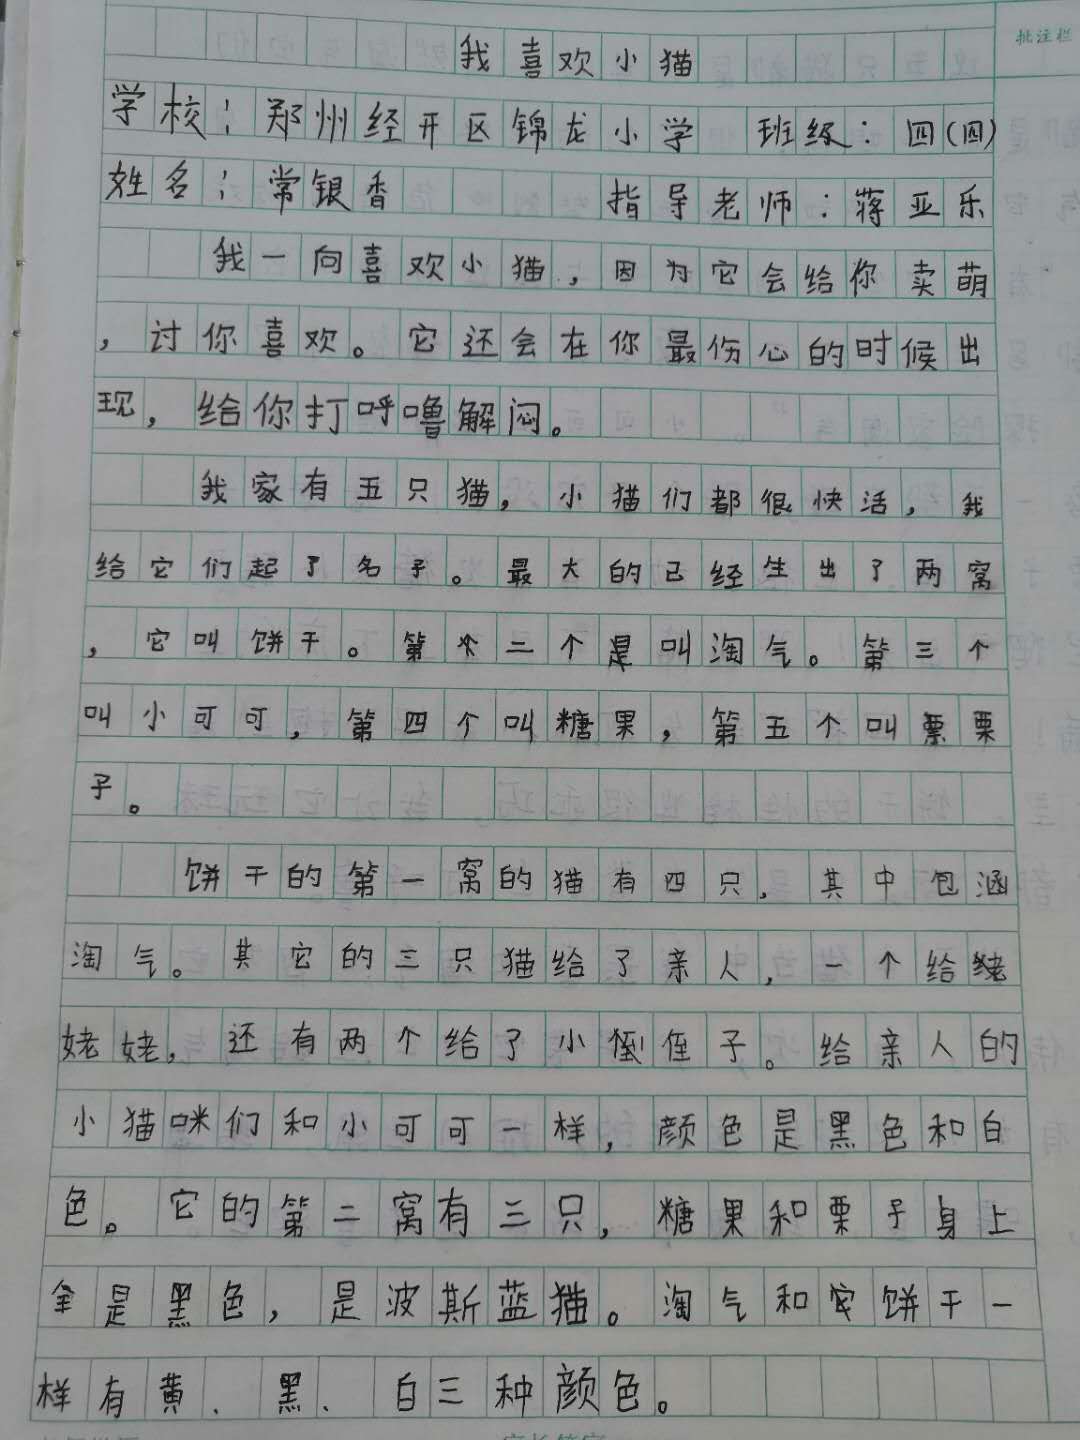 批注栏
我喜欢小猫
学校：郑州经开区锦龙小学 班级：四(四)
姓名：常银香 指导老师：蒋亚乐
我一向喜欢小猫，因为它会给你卖萌
，讨你喜欢。它还会在你最伤心的时候出
现，给你打呼噜解闷。
我家有五只猫，小猫们都很快活，我
给它们起了名子。最大的已经生出了两窝
，它叫饼干。第二个是叫淘气。第三个
叫小可可，第四个叫糖果，第五个叫栗
子。
饼干的第一窝的猫有四只，其中包涵
淘气。其它的三只猫给了亲人，一个给
姥姥，还有两个给了小侄子。给亲人的
小猫咪们和小可可一样，颜色是黑色和白
色。它的第二窝有三只，糖果和栗子身上
全是黑色，是波斯蓝猫。淘气和饼干一
样有黄、黑、白三种颜色。